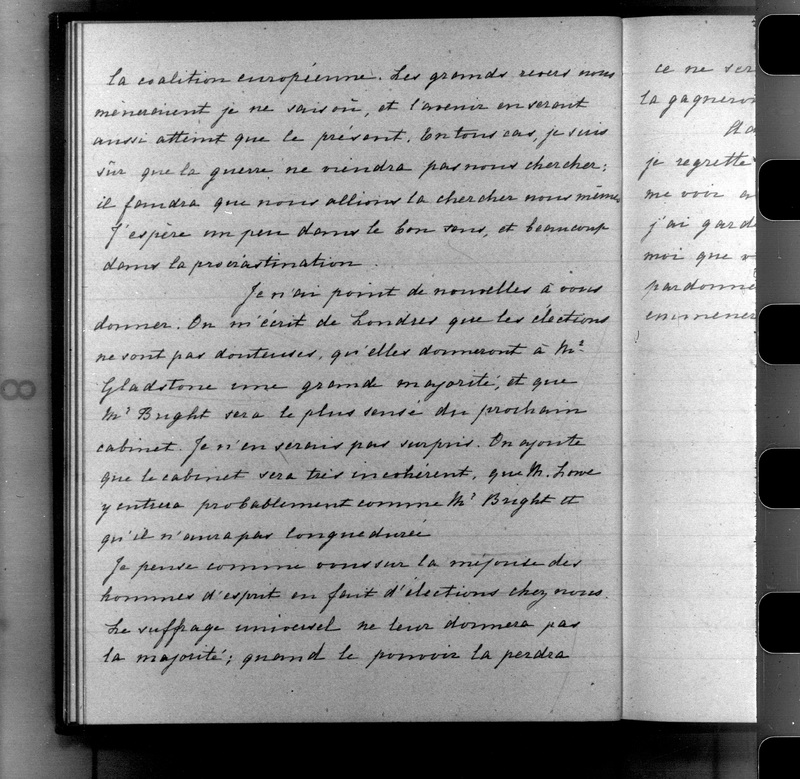 la coalition européenne. Les grands revers nous
mèneraient je ne sais où, et l'avenir en serait
aussi atteint que le présent. En tous cas, je suis
sûr que la guerre ne viendra pas nous chercher;
il faudra que nous allions la chercher nous mêmes
J'espère un peu dans le bon sens, et beaucoup
dans la procrastination.
Je n'ai point de nouvelles à vous
donner. On m'écrit de Londres que les élections
ne sont pas douteuses, qu'elles donneront à Mr
Gladstone une grande majorité, et que
Mr Bright sera le plus sensé du prochain
cabinet. Je n'en serais pas surpris. On ajoute
que le cabinet sera très incohérent, que M. Lowe
y entrera probablement comme Mr Bright et
qu'il n'aura pas longue durée
Je pense comme vous sur la méprise des
hommes d'esprit en fait d'élections chez nous.
Le suffrage universel ne leur donnera pas
la majorité; quand le pouvoir la perdra
ce ne ser
la gagneron
je regrette
me voir a
j'ai gard
moi que v
pardonne
emmener
8